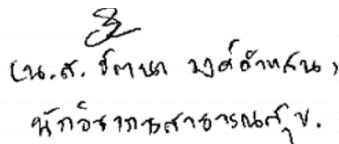 (น.ส. ชีตานา วงค์อำหสน)
นักวิชาการสาธารณสุข.